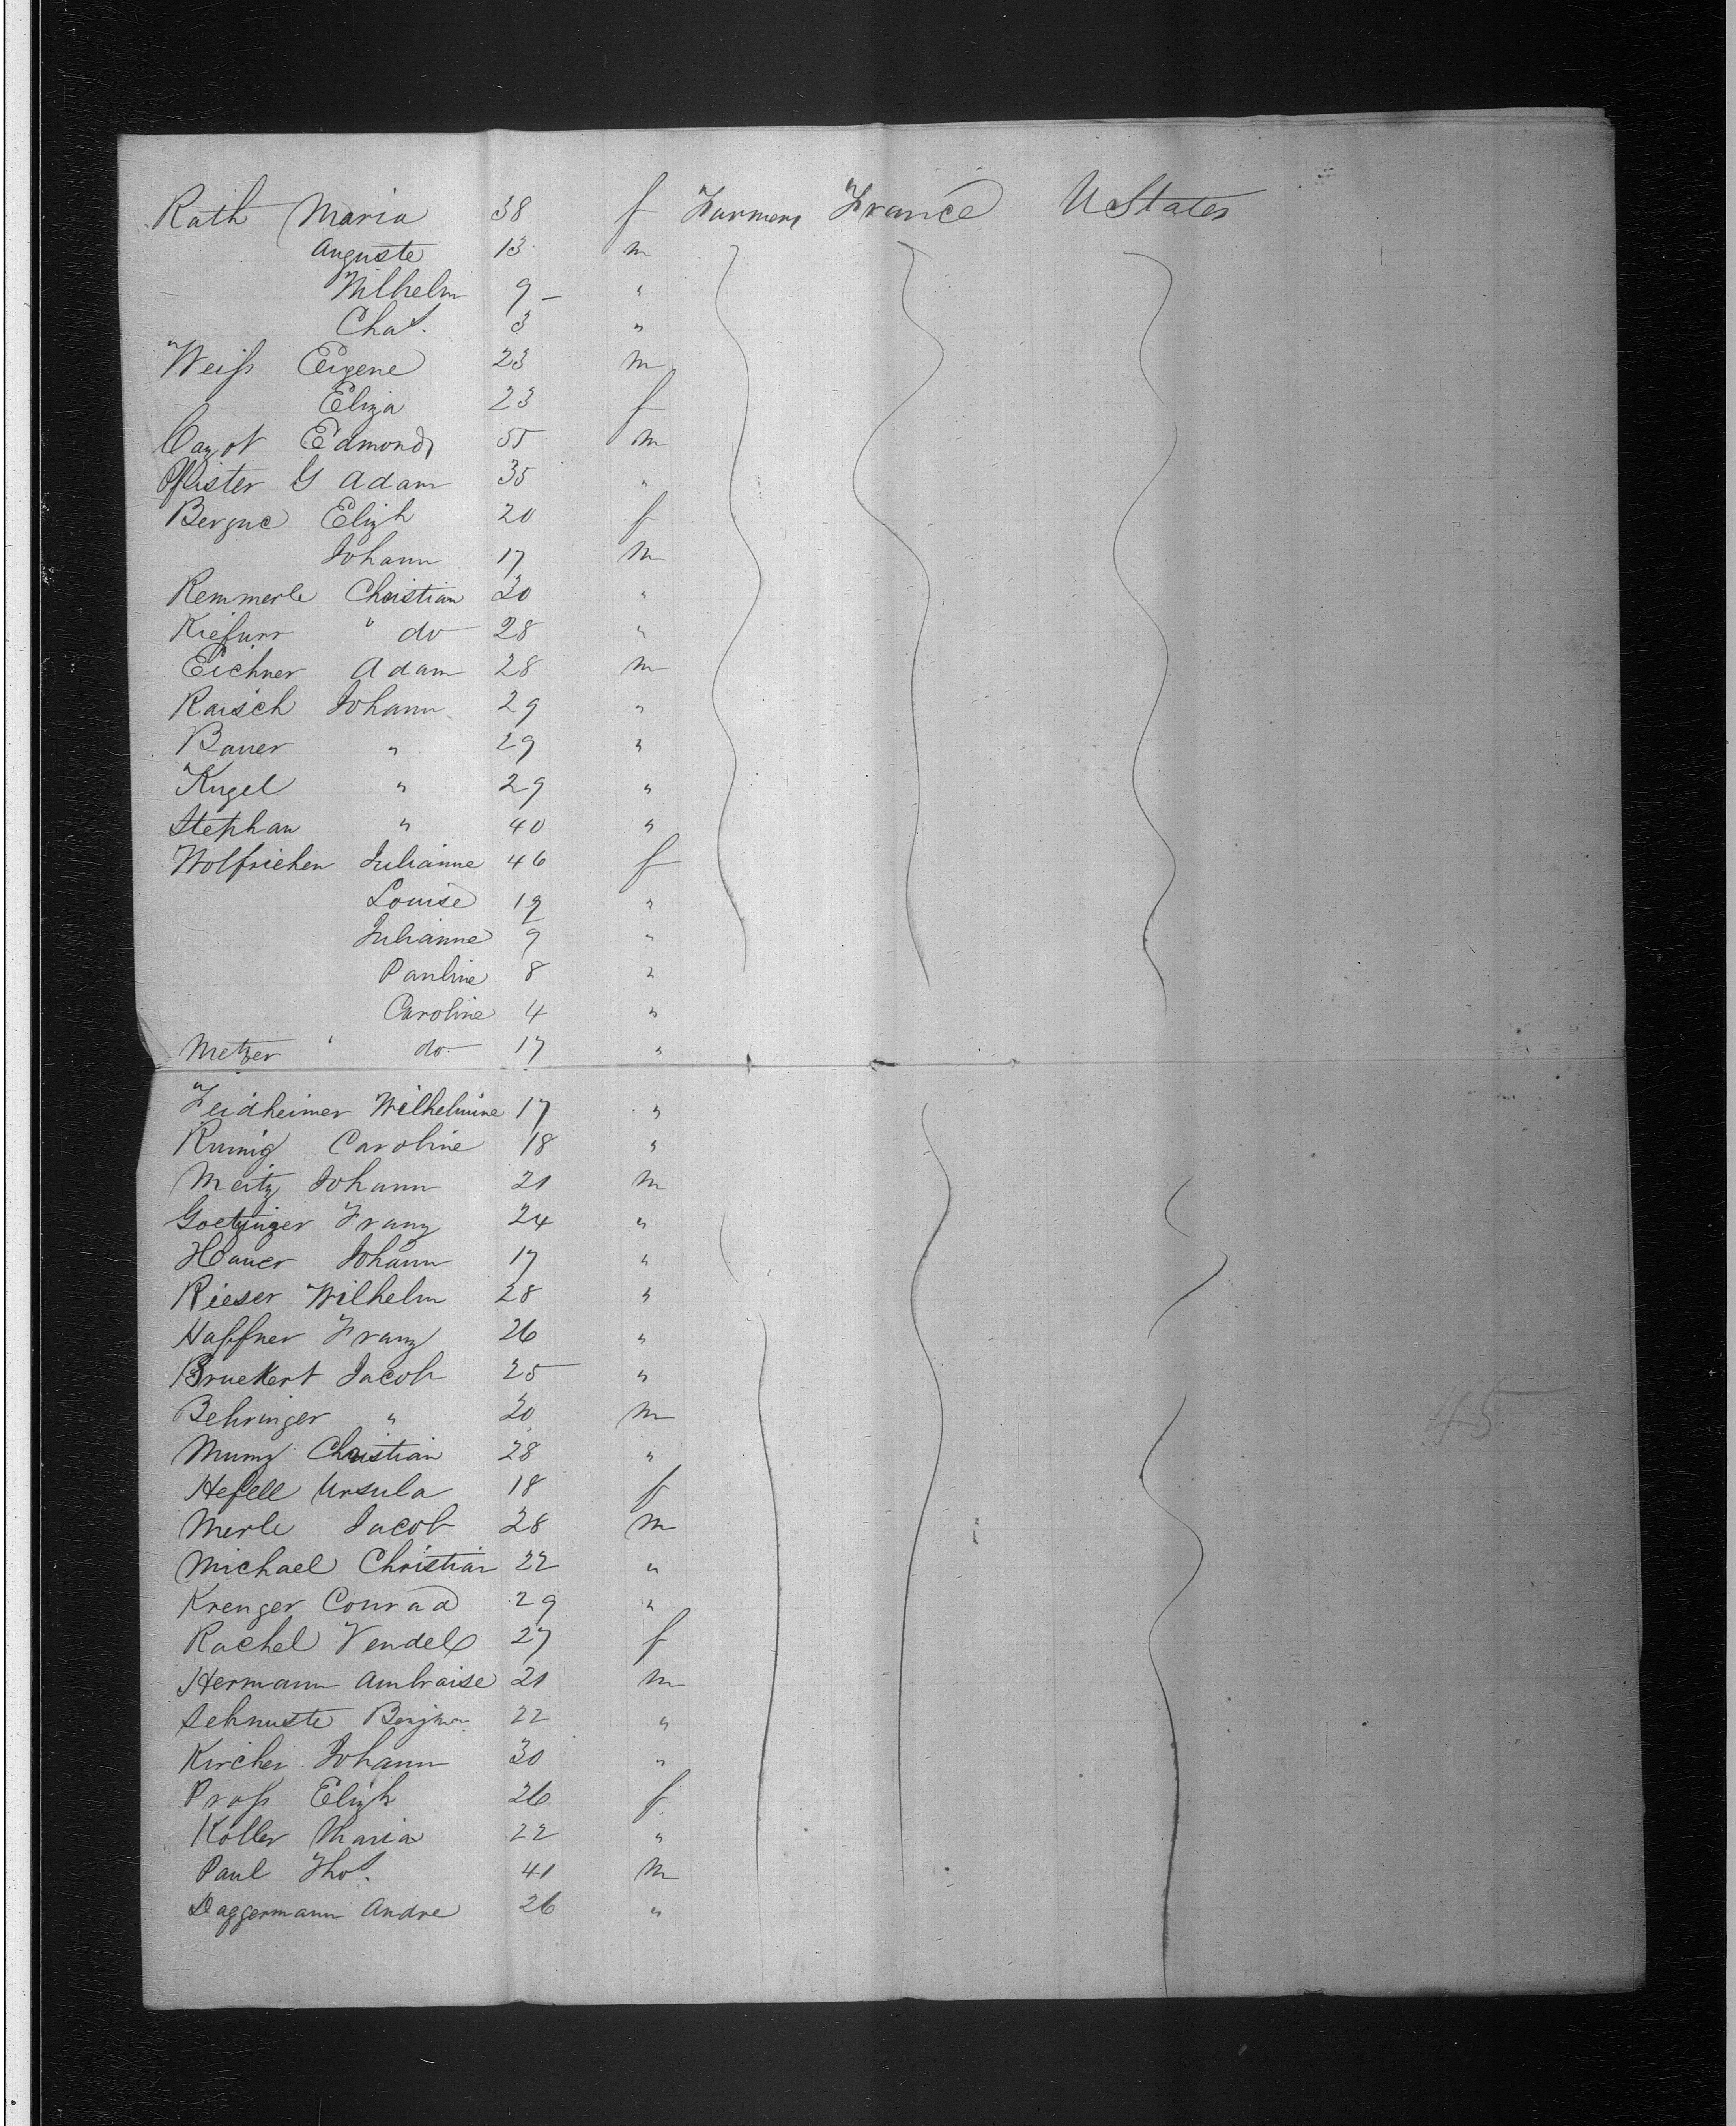 Rath Maria 38 f Farmers France U States
Auguste 13 m
Wilhelm 9 - "
Chas. 3 "
Weiss Eugene 23 m
Eliza 23 f
Cazot Edmond 55 m
Pfister G Adam 35 "
Elizh 20 f
Johann 17 m
Remmerle Christian 30 "
" do 28 "
Eichner Adam 28 m
Raisch Johann 29 "
Bauer " 29 "
Kugel " 29 "
Stephan " 40 "
Julianne 46 f
Louise 19 "
Julianne 9 "
Pauline 8 "
Caroline 4 "
Metzer " do 17 "
Feidheimer Wilhelmine 17 "
Caroline 18 "
Meitz Johann 21 m
Goetzinger Franz 24 "
Hauer Johann 17 "
Rieser Wilhelm 28 "
Haffner Franz 26 "
Bruckert Jacob 25 "
Behringer " 20 m
Munz Christian 28 "
Hefell Ursula 18 f
Merle Jacob 28 m
Michael Christian 22 "
Krenger Conrad 29 "
Rachel Vendel 27 f
Hermann Ambroise 21 m
Schnuste 22 "
Kircher Johann 30 "
Pross Elizh 26 f.
Koller Maria 22 "
Paul Thos. 41 m
Daggermann Andre 26 "
45